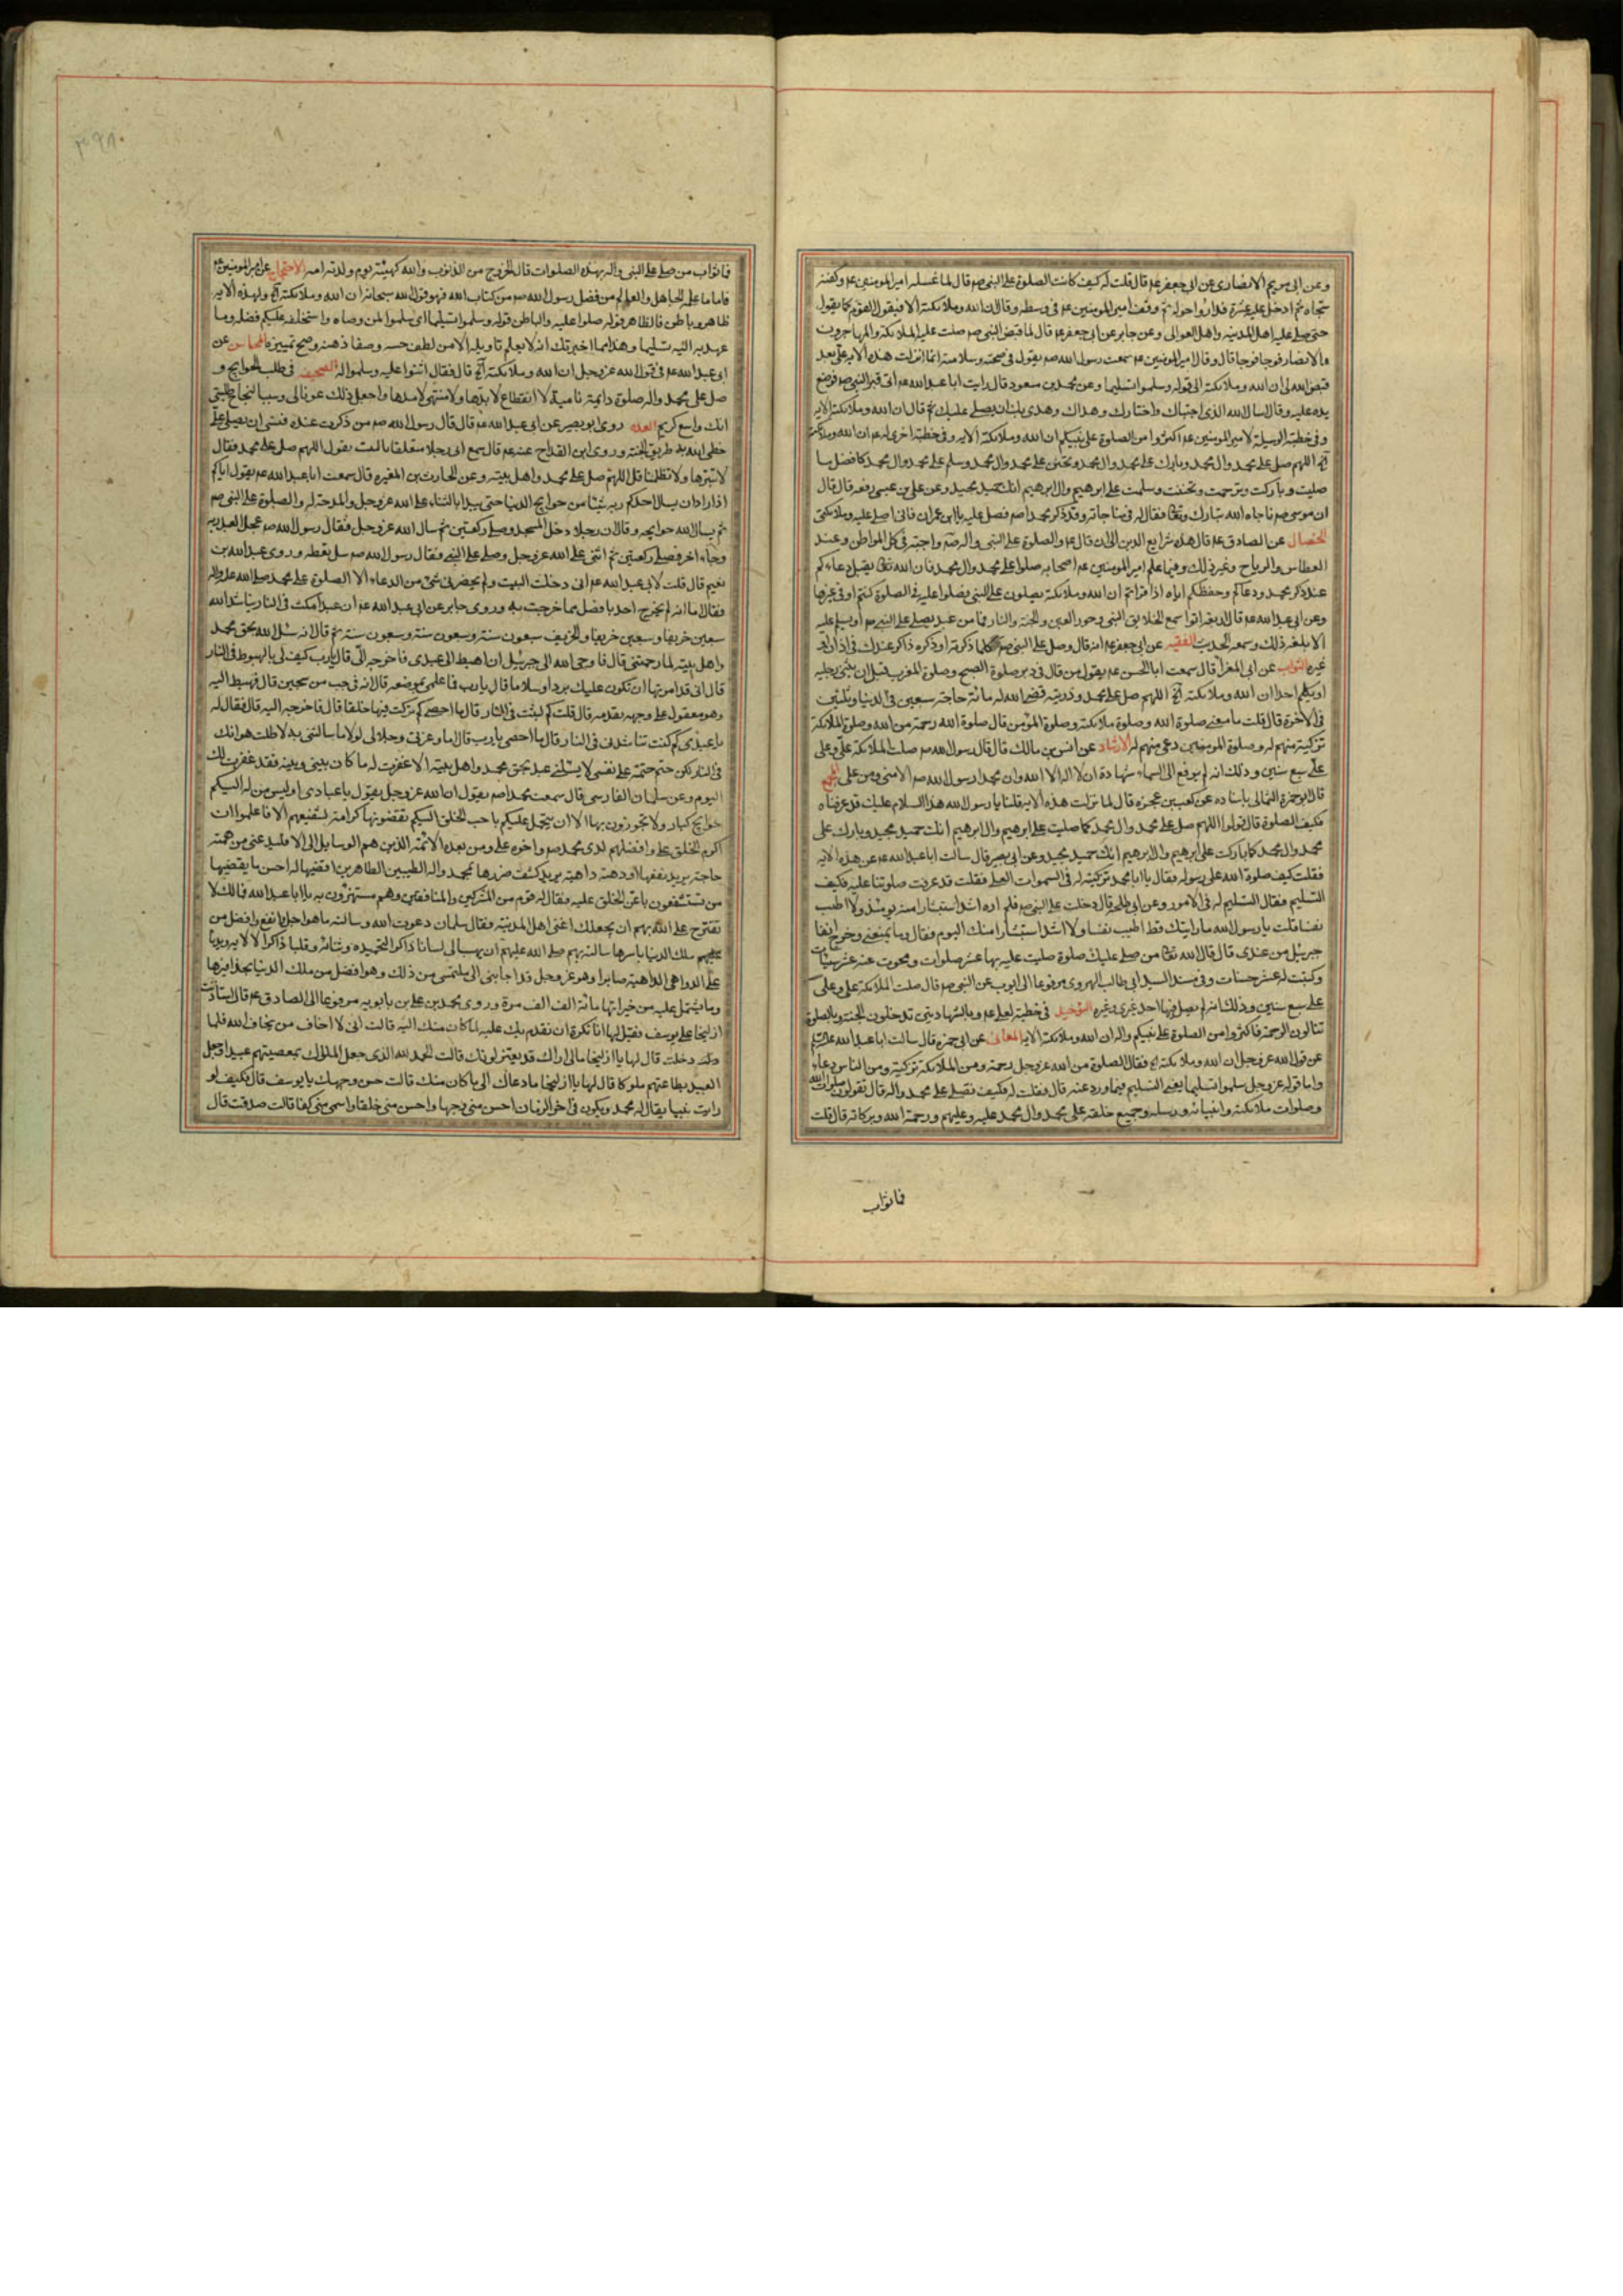 وعن ابی مریم الانصاری عن ابی جعفر عم قال قلت له کیف کانت الصلوة علی النبی صم قال لما غسله امیر المومنین عم وکفنه
سجاه ثم ادخل علیه عشرة فداروا حوله ثم وقف امیر المومنین عم فی وسطهم وقال ان الله وملائکته الآ فیقول القوم کما یقول
حتی صلی علیه اهل المدینه واهل العوالی وعن جابر عن ابی جعفر عم قال لما قبض النبی صم صلت علیه الملائکة والمهاجرون
والانصار فوجا فوجا قال وقال امیر المومنین عم سمعت رسول الله صم یقول فی صحته وسلامته انما انزلت هذه الایه علی بعد
قبض الله لی ان الله وملائکته الی قوله وسلموا تسلیما وعن محمد بن مسعود قال رایت ابا عبد الله عم اتی قبر النبی صم فوضع
یده علیه وقال اسال الله الذی اجتباک واختارک وهداک وهدی بک ان یصلی علیک ثم قال ان الله وملائکته الایه
وفی خطبته الوسیلة لامیر المومنین عم اکثروا من الصلوة علی نبیکم ان الله وملائکته الایه وفی خطبته اخری له عم ان الله وملائکته
آلخ اللهم صل علی محمد وال محمد وبارک علی محمد وال محمد وتحنن علی محمد وال محمد وسلم علی محمد وال محمد کافضل ما
صلیت وبارکت وترحمت وتحننت وسلمت علی ابرهیم وال ابرهیم انک حمید مجید وعن علی بن عیسی رفعه قال قال
ان موسی صم ناجاه الله تبارک وتعا فقال له فی مناجاته وقد ذکر محمدا صم فصل علیه یا ابن عمران فانی اصلی علیه وملائکتی
الخصال عن الصادق عم قال هذه شرایع الدین الی ان قال عم والصلوة علی النبی واله صم واجبة فی کل المواطن وعند
العطاس والریاح وغیر ذلک وفیما علم امیر المومنین عم اصحابه صلوا علی محمد وال محمد فان الله تعا یقبل دعاءکم
عند ذکر محمد ودعاکم وحفظکم ایاه اذا قراتم ان الله وملائکته یصلون علی النبی فصلوا علیه فی الصلوة کنتم او فی غیرها
وعن ابی عبد الله عم قال اربعة اوتوا سمع الخلایق النبی وحور العین والجنة والنار فما من عبد یصلی علی النبی صم او یسلم علیه
الا بلغه ذلک وسمعه الحدیث الفقیه عن ابی جعفر عم انه قال وصل علی النبی صم کلما ذکرته او ذکره ذاکر عندک فی اذان او
غیره الثواب عن ابی المغرا قال سمعت ابا الحسن عم یقول من قال فی دبر صلوة الصبح وصلوة المغرب قبل ان یثنی رجلیه
او یکلم احدا ان الله وملائکته آلخ اللهم صل علی محمد وذریته قضی الله له مائة حاجة سبعین فی الدنیا وثلثین
فی الاخرة قال قلت ما معنی صلوة الله وصلوة ملائکته وصلوة المؤمن قال صلوة الله رحمة من الله وصلوة الملائکة
تزکیة منهم له وصلوة المومنین دعی منهم له الارشاد عن انس بن مالک قال قال رسول الله صم صلت الملائکة علی وعلی
علی سبع سنین وذلک انه لم یرفع الی السماء شهادة ان لا اله الا الله وان محمدا رسول الله صم الا منی ومن علی المجمع
قال ابو حمزة الثمالی باسناده عن کعب بن عجره قال لما نزلت هذه الایه قلنا یا رسول الله هذا السلام علیک قد عرفناه
فکیف الصلوة قال قولوا اللهم صل علی محمد وال محمد کما صلیت علی ابرهیم وال ابرهیم انک حمید مجید وبارک علی
محمد وال محمد کما بارکت علی ابرهیم وال ابرهیم انک حمید مجید وعن ابی بصیر قال سالت ابا عبد الله عم عن هذه الایه
فقلت کیف صلوة الله علی رسوله فقال یا ابا محمد تزکیته له فی السموات العلی فقلت قد عرفت صلوتنا علیه فکیف
التسلیم فقال التسلیم له فی الامور وعن ابی طلحة قال دخلت علی النبی صم فلم اره اشد استبشارا منه یومئذ ولا اطیب
نفسا قلت یا رسول الله ما رایتک قط اطیب نفسا ولا اشد استبشارا منک الیوم فقال وما یمنعنی وخرج انفا
جبرئیل من عندی قال قال الله تعا من صلی علیک صلوة صلیت علیه بها عشر صلوات ومحوت عنه عشر سیئات
وکتبت له عشر حسنات وفی مسند السید ابی طالب الهروی مرفوعا الی ابی ایوب عن النبی صم قال صلت الملائکة علی وعلی
علی سبع سنین وذلک انه لم یصل فیها احد غیری وغیره التوحید فی خطبة لعلی عم وبالشهادتین تدخلون الجنة وبالصلوة
تنالون الرحمة فاکثروا من الصلوة علی نبیکم واله ان الله وملائکته الایه المعانی عن ابی حمزه قال سالت ابا عبد الله عم
عن قول الله عز وجل ان الله وملائکته آلخ فقال الصلوة من الله عز وجل رحمة ومن الملائکة تزکیة ومن الناس دعاء
واما قوله عز وجل سلموا تسلیما یعنی التسلیم فیما ورد عنه قال فقلت له فکیف نصلی علی محمد واله قال تقولون صلوات الله
وصلوات ملائکته وانبیائه ورسله وجمیع خلقه علی محمد وال محمد علیه وعلیهم ورحمة الله وبرکاته قال قلت
فما ثواب
فما ثواب من صلی علی النبی واله بهذه الصلوات قال الخروج من الذنوب والله کهیئة یوم ولدته امه الاحتجاج عن امیر المومنین عم
فاما ما علمه الجاهل والعالم من فضل رسول الله صم من کتاب الله فهو قول الله سبحانه ان الله وملائکته آلخ ولهذه الایه
ظاهر وباطن فالظاهر قوله صلوا علیه والباطن قوله وسلموا تسلیما ای سلموا لمن وصاه واستخلفه علیکم فضله وما
عهد به الیه تسلیما وهذا مما اخبرتک انه لا یعلم تاویله الا من لطف حسه وصفا ذهنه وصح تمییزه المحاسن عن
ابی عبد الله عم فی قول الله عز وجل ان الله وملائکته آلخ قال فقال اثنوا علیه وسلموا له الصحیفة فی طلب الحوایج و
صل علی محمد واله صلوة دائمة نامیة لا انقطاع لابدها ولا منتهی لامدها واجعل ذلک عونا لی وسببا لنجاح طلبتی
انک واسع کریم العده روی ابو بصیر عن ابی عبد الله عم قال قال رسول الله صم من ذکرت عنده فنسی ان یصلی علی
خطی الله به طریق الجنة وروی ابن القداح عنه عم قال سمع ابی رجلا متعلقا بالبیت یقول اللهم صل علی محمد فقال
لا تبترها ولا تظلمنا قل اللهم صل علی محمد واهل بیته وعن الحارث بن المغیره قال سمعت ابا عبد الله عم یقول ایاکم
اذا اراد ان یسال احدکم ربه شیئا من حوایج الدنیا حتی یبدا بالثناء علی الله عز وجل والمدحة له والصلوة علی النبی صم
ثم یسال الله حوایجه وقال ان رجلا دخل المسجد وصلی رکعتین ثم سال الله عز وجل فقال رسول الله صم عجل العبد ربه
وجاء اخر فصلی رکعتین ثم اثنی علی الله عز وجل وصلی علی النبی فقال رسول الله صم سل تعطه وروی عبد الله بن
نعیم قال قلت لابی عبد الله عم انی دخلت البیت ولم یحضرنی شیء من الدعاء الا الصلوة علی محمد صلی الله علیه واله
فقال اما انه لم یخرج احد بافضل مما خرجت به وروی جابر عن ابی عبد الله عم ان عبدا مکث فی النار یناشد الله
سبعین خریفا وسبعین خریفا والخریف سبعون سنة وسبعون سنة وسبعون سنة ثم قال انه سئل الله بحق محمد
واهل بیته لما رحمتنی قال فاوحی الله الی جبرئیل ان اهبط الی عبدی فاخرجه الی قال یا رب کیف لی بالهبوط فی النار
قال انی قد امرتها ان تکون علیک بردا وسلاما قال یا رب فما علمی بموضعه قال انه فی جب من سجین قال فهبط الیه
وهو معقول علی وجهه بقدمه قال قلت کم لبثت فی النار قال ما احصی کم ترکت فیها خلقا قال فاخرجه الیه قال فقال له
یا عبدی کم کنت تناشدنی فی النار قال ما احصی یا رب قال اما وعزتی وجلالی لولا ما سالتنی به لاطلت هوانک
فی النار لکن حتم حتمته علی نفسی لا یسئلنی عبد بحق محمد واهل بیته الا غفرت له ما کان بینی وبینه فقد غفرت لک
الیوم وعن سلمان الفارسی قال سمعت محمدا صم یقول ان الله عز وجل یقول یا عبادی اولیس من له الیکم
حوایج کبار ولا تجودون بها الا ان یتحمل علیکم باحب الخلق الیکم تقضونها کرامة لشفیعهم الا فاعلموا ان
اکرم الخلق علی وافضلهم لدی محمد صم واخوه علی ومن بعده الائمة الذین هم الوسایل الی الا فلیدعنی من همته
حاجة یرید نفعها او دهته داهیة یرید کشف ضررها بمحمد واله الطیبین الطاهرین اقضیها له احسن ما یقضیها
من تستشفعون باعز الخلق علیه فقال له قوم من المشرکین والمنافقین وهم مستهزؤن به یا ابا عبد الله فما لک لا
تقترح علی الله بهم ان یجعلک اغنی اهل المدینة فقال سلمان دعوت الله وسالته ما هو اجل وانفع وافضل من
ملک الدنیا باسرها سالته بهم صلی الله علیهم ان یهب لی لسانا ذاکرا لتحمیده وثنائه وقلبا ذاکرا لالائه وبدنا
علی الدواهی الداهیة صابرا وهو عز وجل قد اجابنی الی ملتمسی من ذلک وهو افضل من ملک الدنیا بحذافیرها
وما یشتمل علیه من خیراتها مائة الف الف مرة وروی محمد بن علی بن بابویه مرفوعا الی الصادق عم قال استاذنت
ازلیخا علی یوسف فقیل لها انا نکره ان نقدم بک علیه لما کان منک الیه قالت انی لا اخاف من یخاف الله فلما
دخلت قال لها یا ازلیخا مالی اراک قد تغیر لونک قالت الحمد لله الذی جعل الملوک بمعصیتهم عبیدا وجعل
العبید بطاعتهم ملوکا قال لها یا ازلیخا ما دعاک الی ما کان منک قالت حسن وجهک یا یوسف قال فکیف لو
رایت نبیا یقال له محمد ویکون فی اخر الزمان احسن منی وجها واحسن منی خلقا واسمی منی کفا قالت صدقت قال